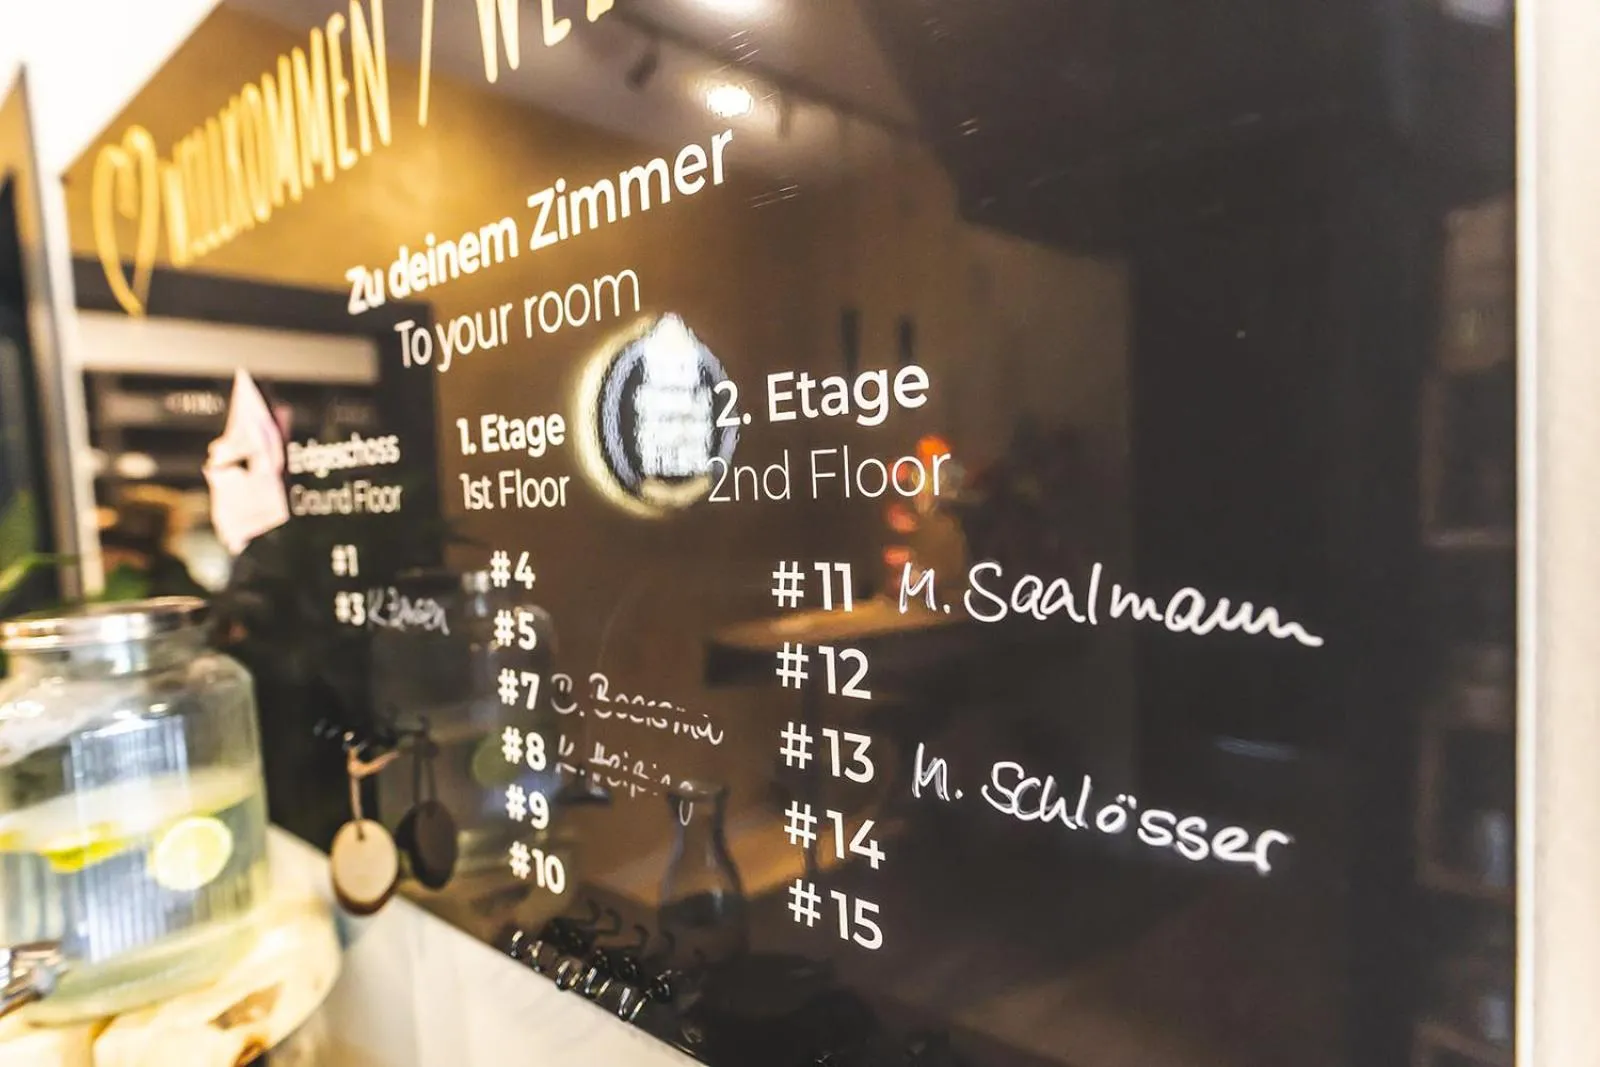 WILLKOMMEN / WEL
Zu deinem Zimmer
To your room
Erdgeschoss
Ground Floor
#1
#3 K.
1. Etage
1st Floor
#4
#5
#7 B.
#8 K.
#9
#10
2. Etage
2nd Floor
#11 M. Saalmann
#12
#13 M. Schlösser
#14
#15